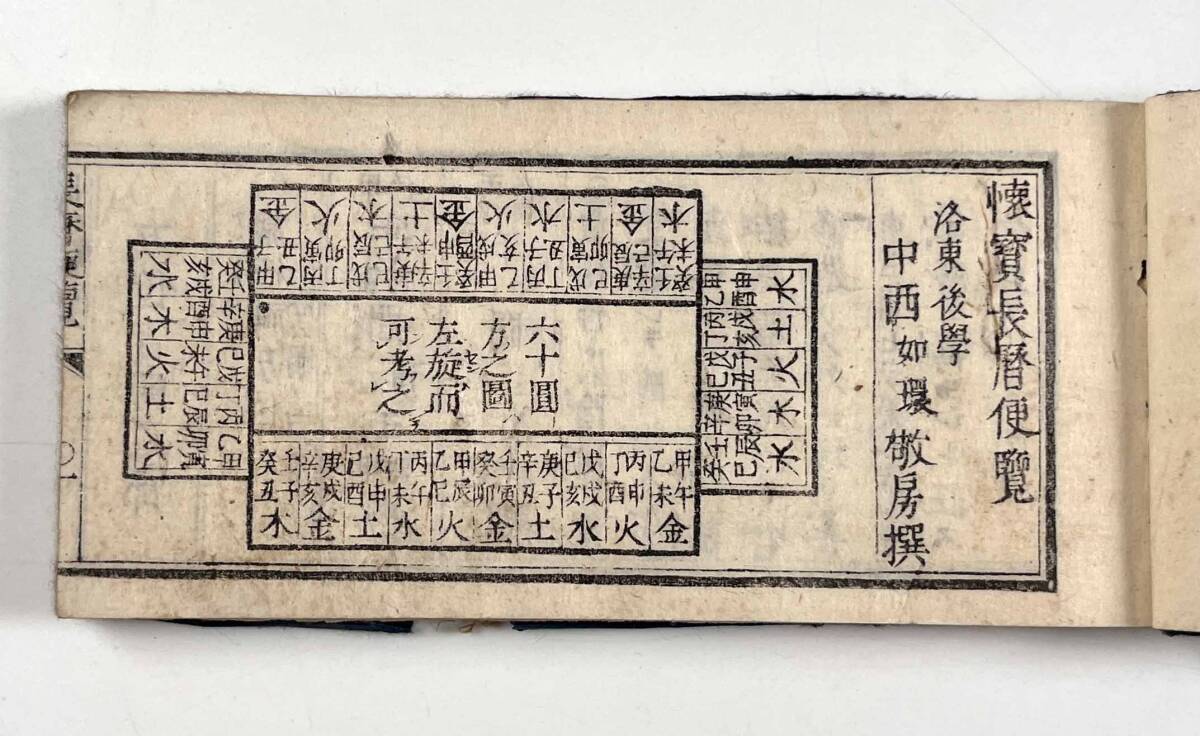 懷寶長曆便覽
洛東後學
中西如環敬房撰
甲子乙丑金
丙寅丁卯火
戊辰己巳木
庚午辛未土
壬申癸酉金
甲戌乙亥火
丙子丁丑水
戊寅己卯土
庚辰辛巳金
壬午癸未木
甲申乙酉水
丙戌丁亥土
戊子己丑火
庚寅辛卯木
壬辰癸巳水
六十圓
方之圖
左旋而
可考之
甲午乙未金
丙申丁酉火
戊戌己亥木
庚子辛丑土
壬寅癸卯金
甲辰乙巳火
丙午丁未水
戊申己酉土
庚戌辛亥金
壬子癸丑木
甲寅乙卯水
丙辰丁巳土
戊午己未火
庚申辛酉木
壬戌癸亥水
〇一